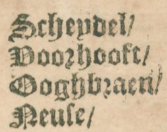 Scheydel/
Voorhooft/
Ooghbraen/
Neuse/